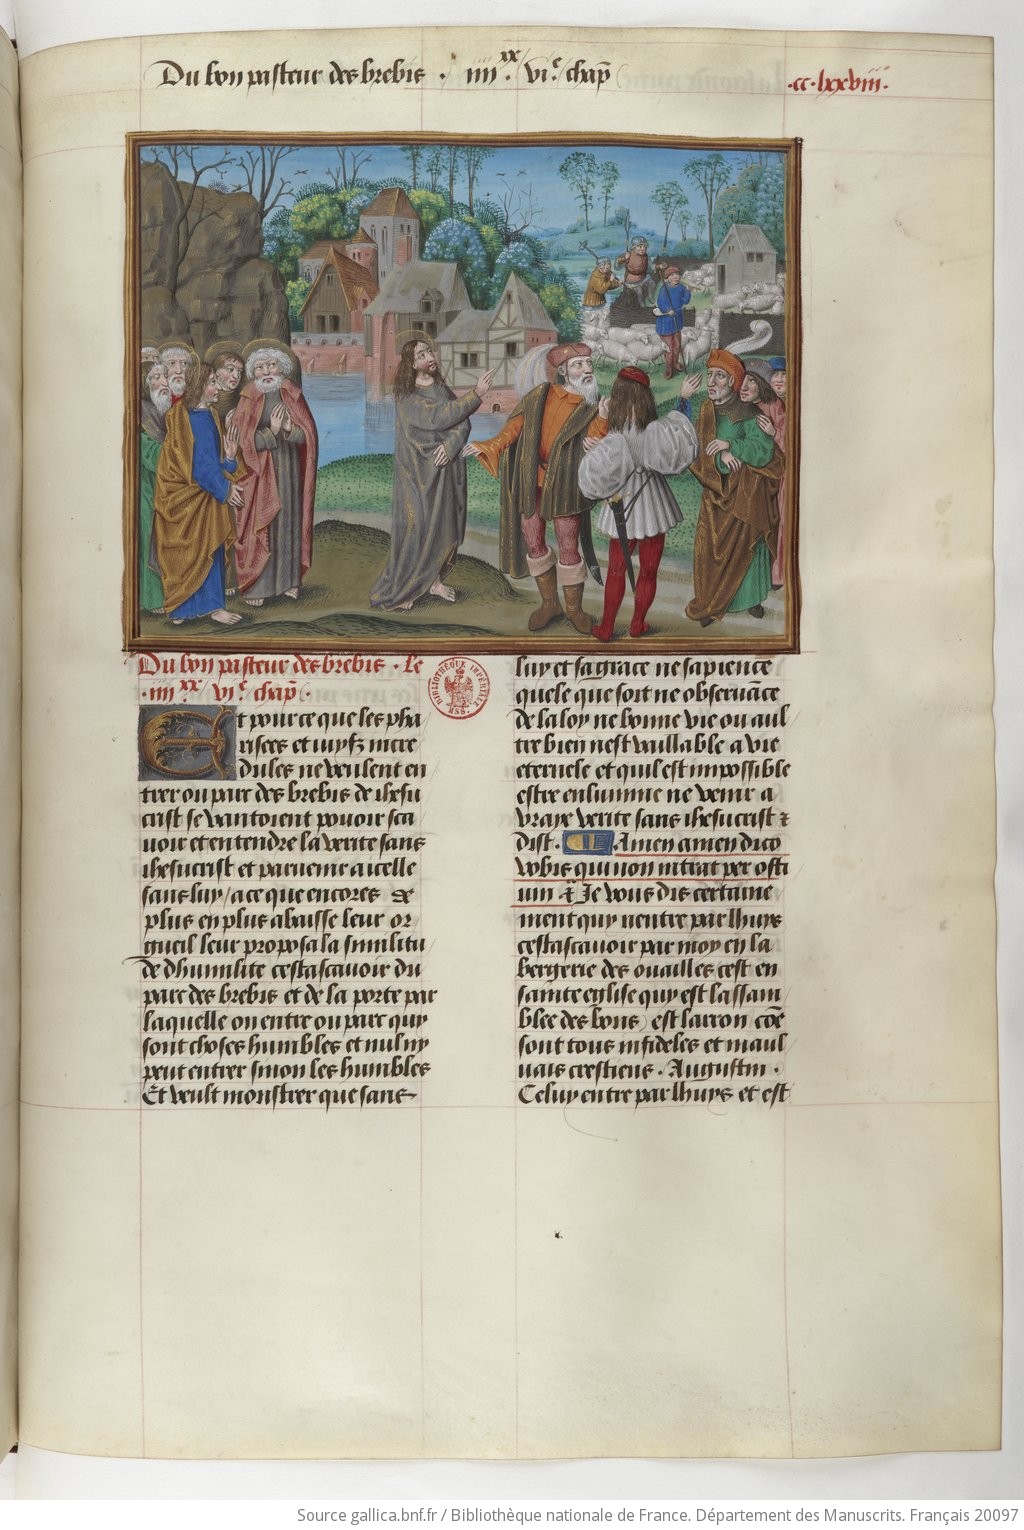 Du bon pasteur des brebis · iiii.xx vi.e chap̄
·cc·lxxviii·
Du bon pasteur des brebis · Le
·iiii xx vi e chap̄
Et pour ce que les pha
risees et iuyfz incre
dules ne veulent en
trer ou parc des brebis de ihesu
crist se vantoient pouoir sca
uoir et entendre la verite sans
ihesucrist et paruenir a icelle
sans luy / a ce que encores de
plus en plus abaisse leur or
gueil leur proposa la similitu
de dhumilite cestascauoir du
parc des brebis et de la porte par
laquelle on entre ou parc quy
sont choses humbles et nul ny
peut entrer sinon les humbles
Et veult monstrer que sans
BIBLIOTHÈQUE IMPÉRIALE MSS.
luy et sa grace ne sapience
quele que soit ne obseruāce
de la loy ne bonne vie ou aul
tre bien nest vaillable a vie
eternele et quil est impossible
estre enlumine ne venir a
vraye verite sans ihesucrist ⁊
dist · Amen amen dico
vobis qui non intrat per osti
um ⁊c̄ Je vous dis certaine
ment quy nentre par lhuys
cestascauoir par moy en la
bergerie des ouailles cest en
sainte eglise quy est lassam
blee des bons / est larron cōe
sont tous infideles et maul
uais crestiens · Augustin ·
Celuy entre par lhuys et est
Source gallica.bnf.fr / Bibliothèque nationale de France. Département des Manuscrits. Français 20097